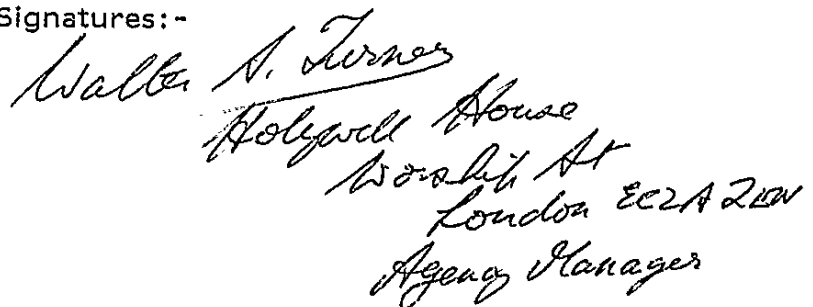 Signatures:-
Walter A. Turner
Holywell House
Worship St
London EC2A 2EN
Agency Manager